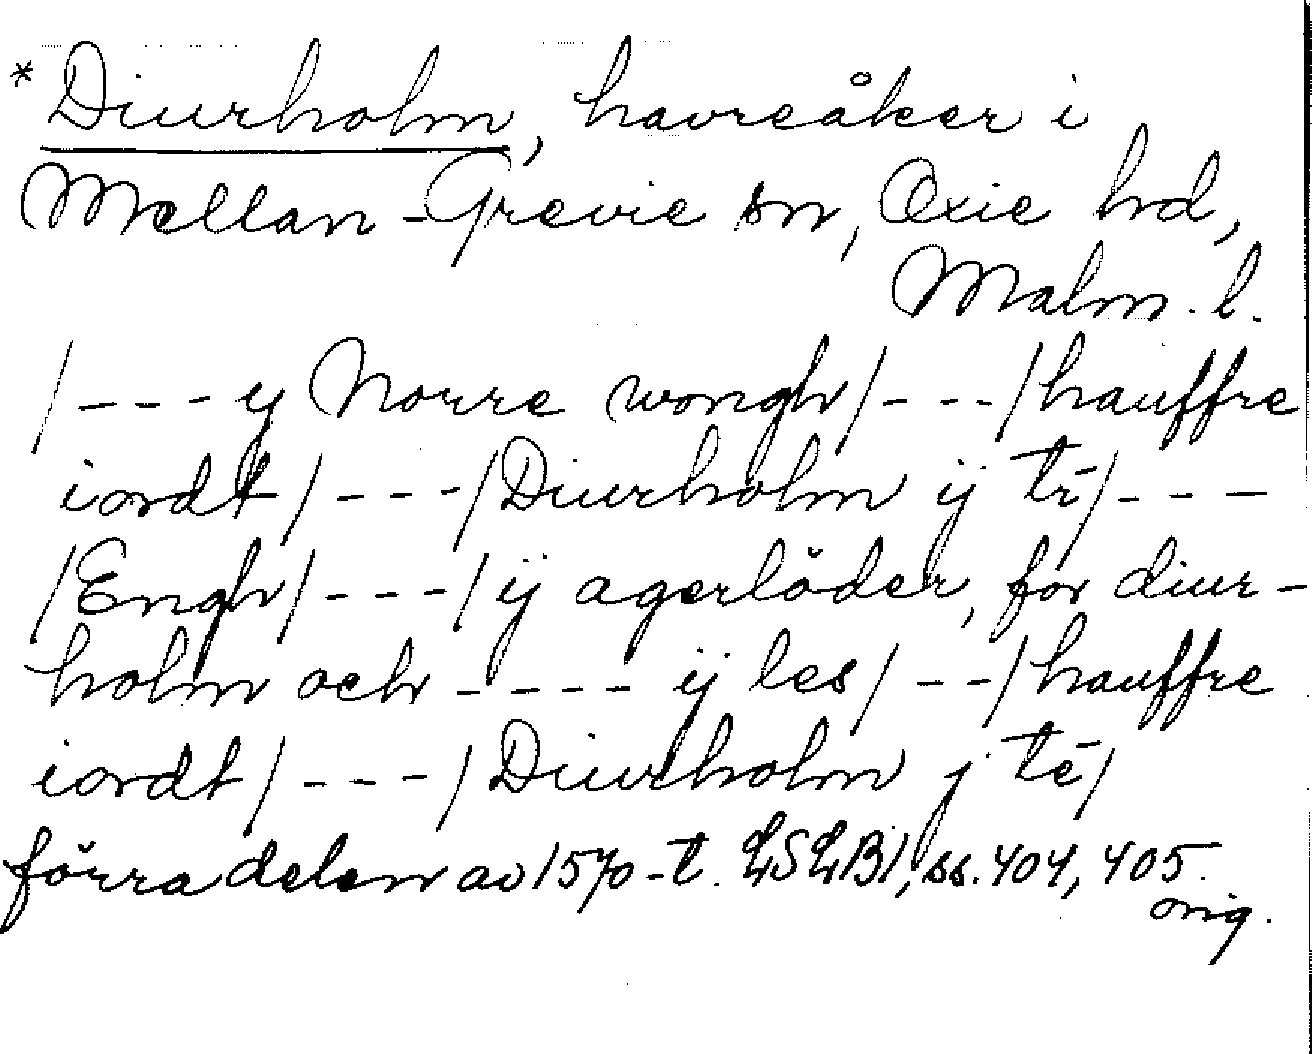 * Diurholm, havreåker i
Mellan-Grevie sn, Oxie hd,
Malm. l.
/---y Norre wongh/---/hauffre
iordt/---/Diurholm ij tr̄/---
/Engh/---/ij agerlöder, for diur-
holm och ---- ij les/--/hauffre
iordt/---/Diurholm j tē/
förra delen av 1570-t. LSLB1, ss. 404, 405.
orig.